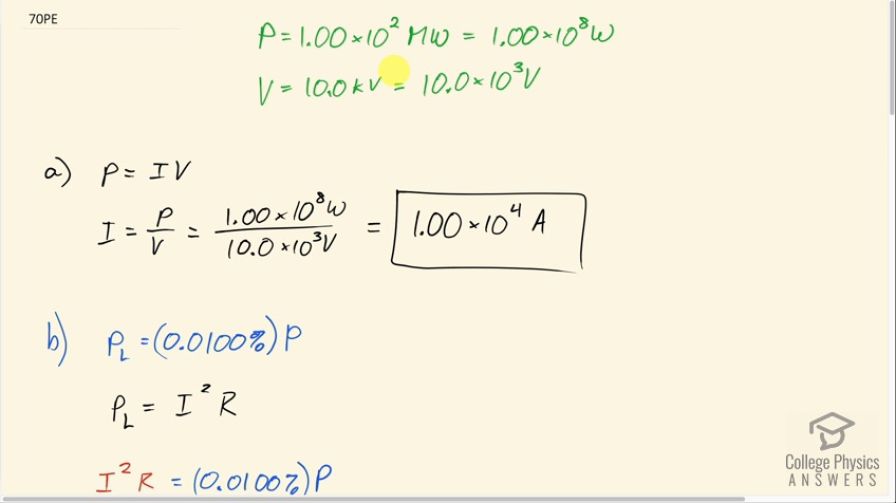 70PE
P = 1.00 × 10² MW = 1.00 × 10⁸ W
V = 10.0 kV = 10.0 × 10³ V
a) P = IV
I = P/V = 1.00 × 10⁸ W / 10.0 × 10³ V = 1.00 × 10⁴ A
b) P_L = (0.0100%) P
P_L = I² R
I² R = (0.0100%) P
College Physics
ANSWERS